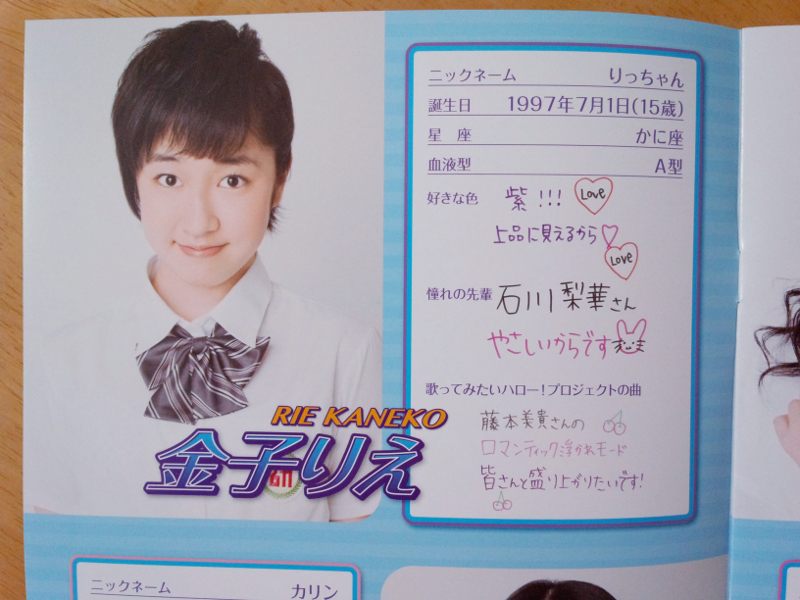 ニックネーム りっちゃん
誕生日 1997年7月1日(15歳)
星座 かに座
血液型 A型
好きな色 紫!!! Love
上品に見えるから
Love
憧れの先輩 石川梨華さん
やさしいからです
歌ってみたいハロー!プロジェクトの曲
藤本美貴さんの
ロマンティック浮かれモード
皆さんと盛り上がりたいです!
RIE KANEKO
金子りえ
ニックネーム カリン